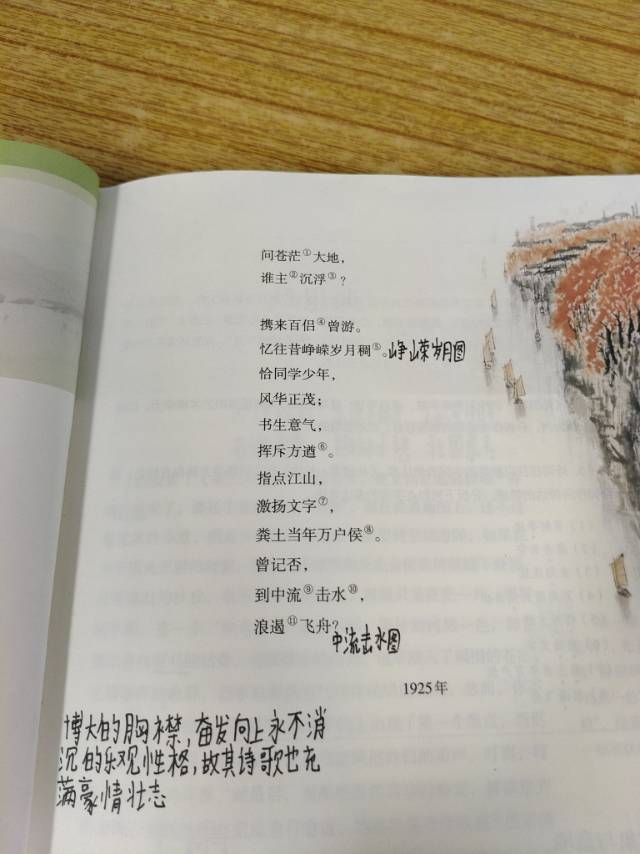 问苍茫①大地，
谁主②沉浮③？
携来百侣④曾游。
忆往昔峥嵘岁月稠⑤。峥嵘岁月图
恰同学少年，
风华正茂；
书生意气，
挥斥方遒⑥。
指点江山，
激扬文字⑦，
粪土当年万户侯⑧。
曾记否，
到中流⑨击水⑩，
浪遏⑪飞舟？
中流击水图
1925年
博大的胸襟，奋发向上永不消
沉的乐观性格，故其诗歌也充
满豪情壮志